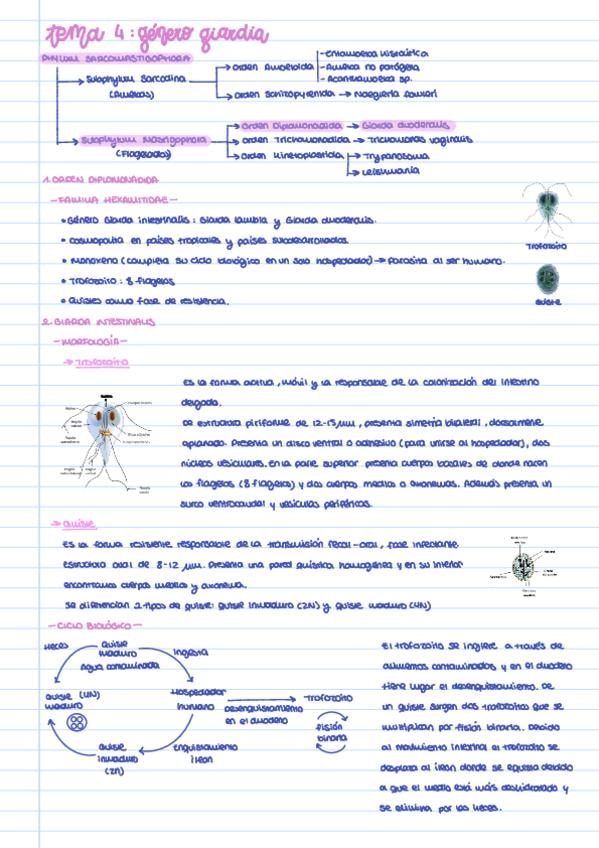 tema 4: género giardia
PHYLUM SARCOMASTIGOPHORA
Subphylum Sarcodina
(Amebas)
Orden Amoebida
Entamoeba histolítica
Ameba no patógena
Acanthamoeba sp.
Orden Schizopyrenida → Naegleria fowleri
Subphylum Mastigophora
(Flagelados)
Orden Diplomonadida → Giardia duodenalis
Orden Trichomonadida → Trichomonas vaginalis
Orden Kinetoplastida → Trypanosoma
Leishmania
1. ORDEN DIPLOMONADIDA
- FAMILIA HEXAMITIDAE -
• Género Giardia intestinalis: Giardia lamblia y Giardia duodenalis.
• Cosmopolita en países tropicales y países subdesarrollados.
• Monoxeno (completa su ciclo biológico en un solo hospedador) → Parasita al ser humano.
• Trofozoíto: 8 flagelos
• Quistes como fase de resistencia.
Trofozoito
quiste
2. GIARDIA INTESTINALIS
- MORFOLOGÍA -
→ Trofozoíto
Es la forma activa, móvil y la responsable de la colonización del intestino
delgado.
De estructura piriforme de 12-15 µm, presenta simetría bilateral, dorsalmente
aplanado. Presenta un disco ventral o adhesivo (para unirse al hospedador), dos
núcleos vesiculares. En la parte superior presenta cuerpos basales de donde nacen
los flagelos (8 flagelos) y dos cuerpos medios o axonemas. Además presenta un
surco ventrocaudal y vesículas periféricas.
→ quiste
Es la forma resistente responsable de la transmisión fecal-oral, fase infectante.
Estructura oval de 8-12 µm. Presenta una pared quística homogénea y en su interior
encontramos cuerpos medios y axonema.
Se diferencian 2 tipos de quiste: quiste inmaduro (2N) y quiste maduro (4N)
- CICLO BIOLÓGICO -
Heces
quiste
maduro
Agua contaminada
Ingesta
quiste (4N)
maduro
Hospedador
humano
Desenquistamiento
en el duodeno
Trofozoíto
fisión
binaria
quiste
inmaduro
(2n)
Enquistamiento
íleon
El trofozoíto se ingiere a través de
alimentos contaminados y en el duodeno
tiene lugar el desenquistamiento. De
un quiste surgen dos trofozoítos que se
multiplican por fisión binaria. Debido
al movimiento intestinal el trofozoíto se
desplaza al íleon donde se enquista debido
a que el medio está más deshidratado y
se elimina por las heces.